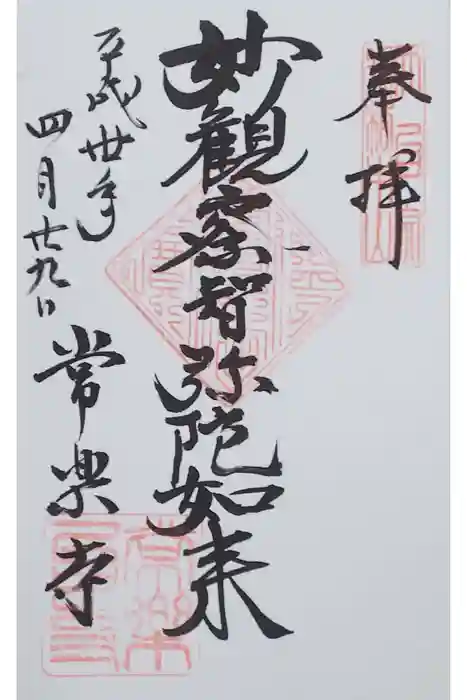 奉拝
妙観察智弥陀如来
平成卅年
四月廿九日
常楽寺